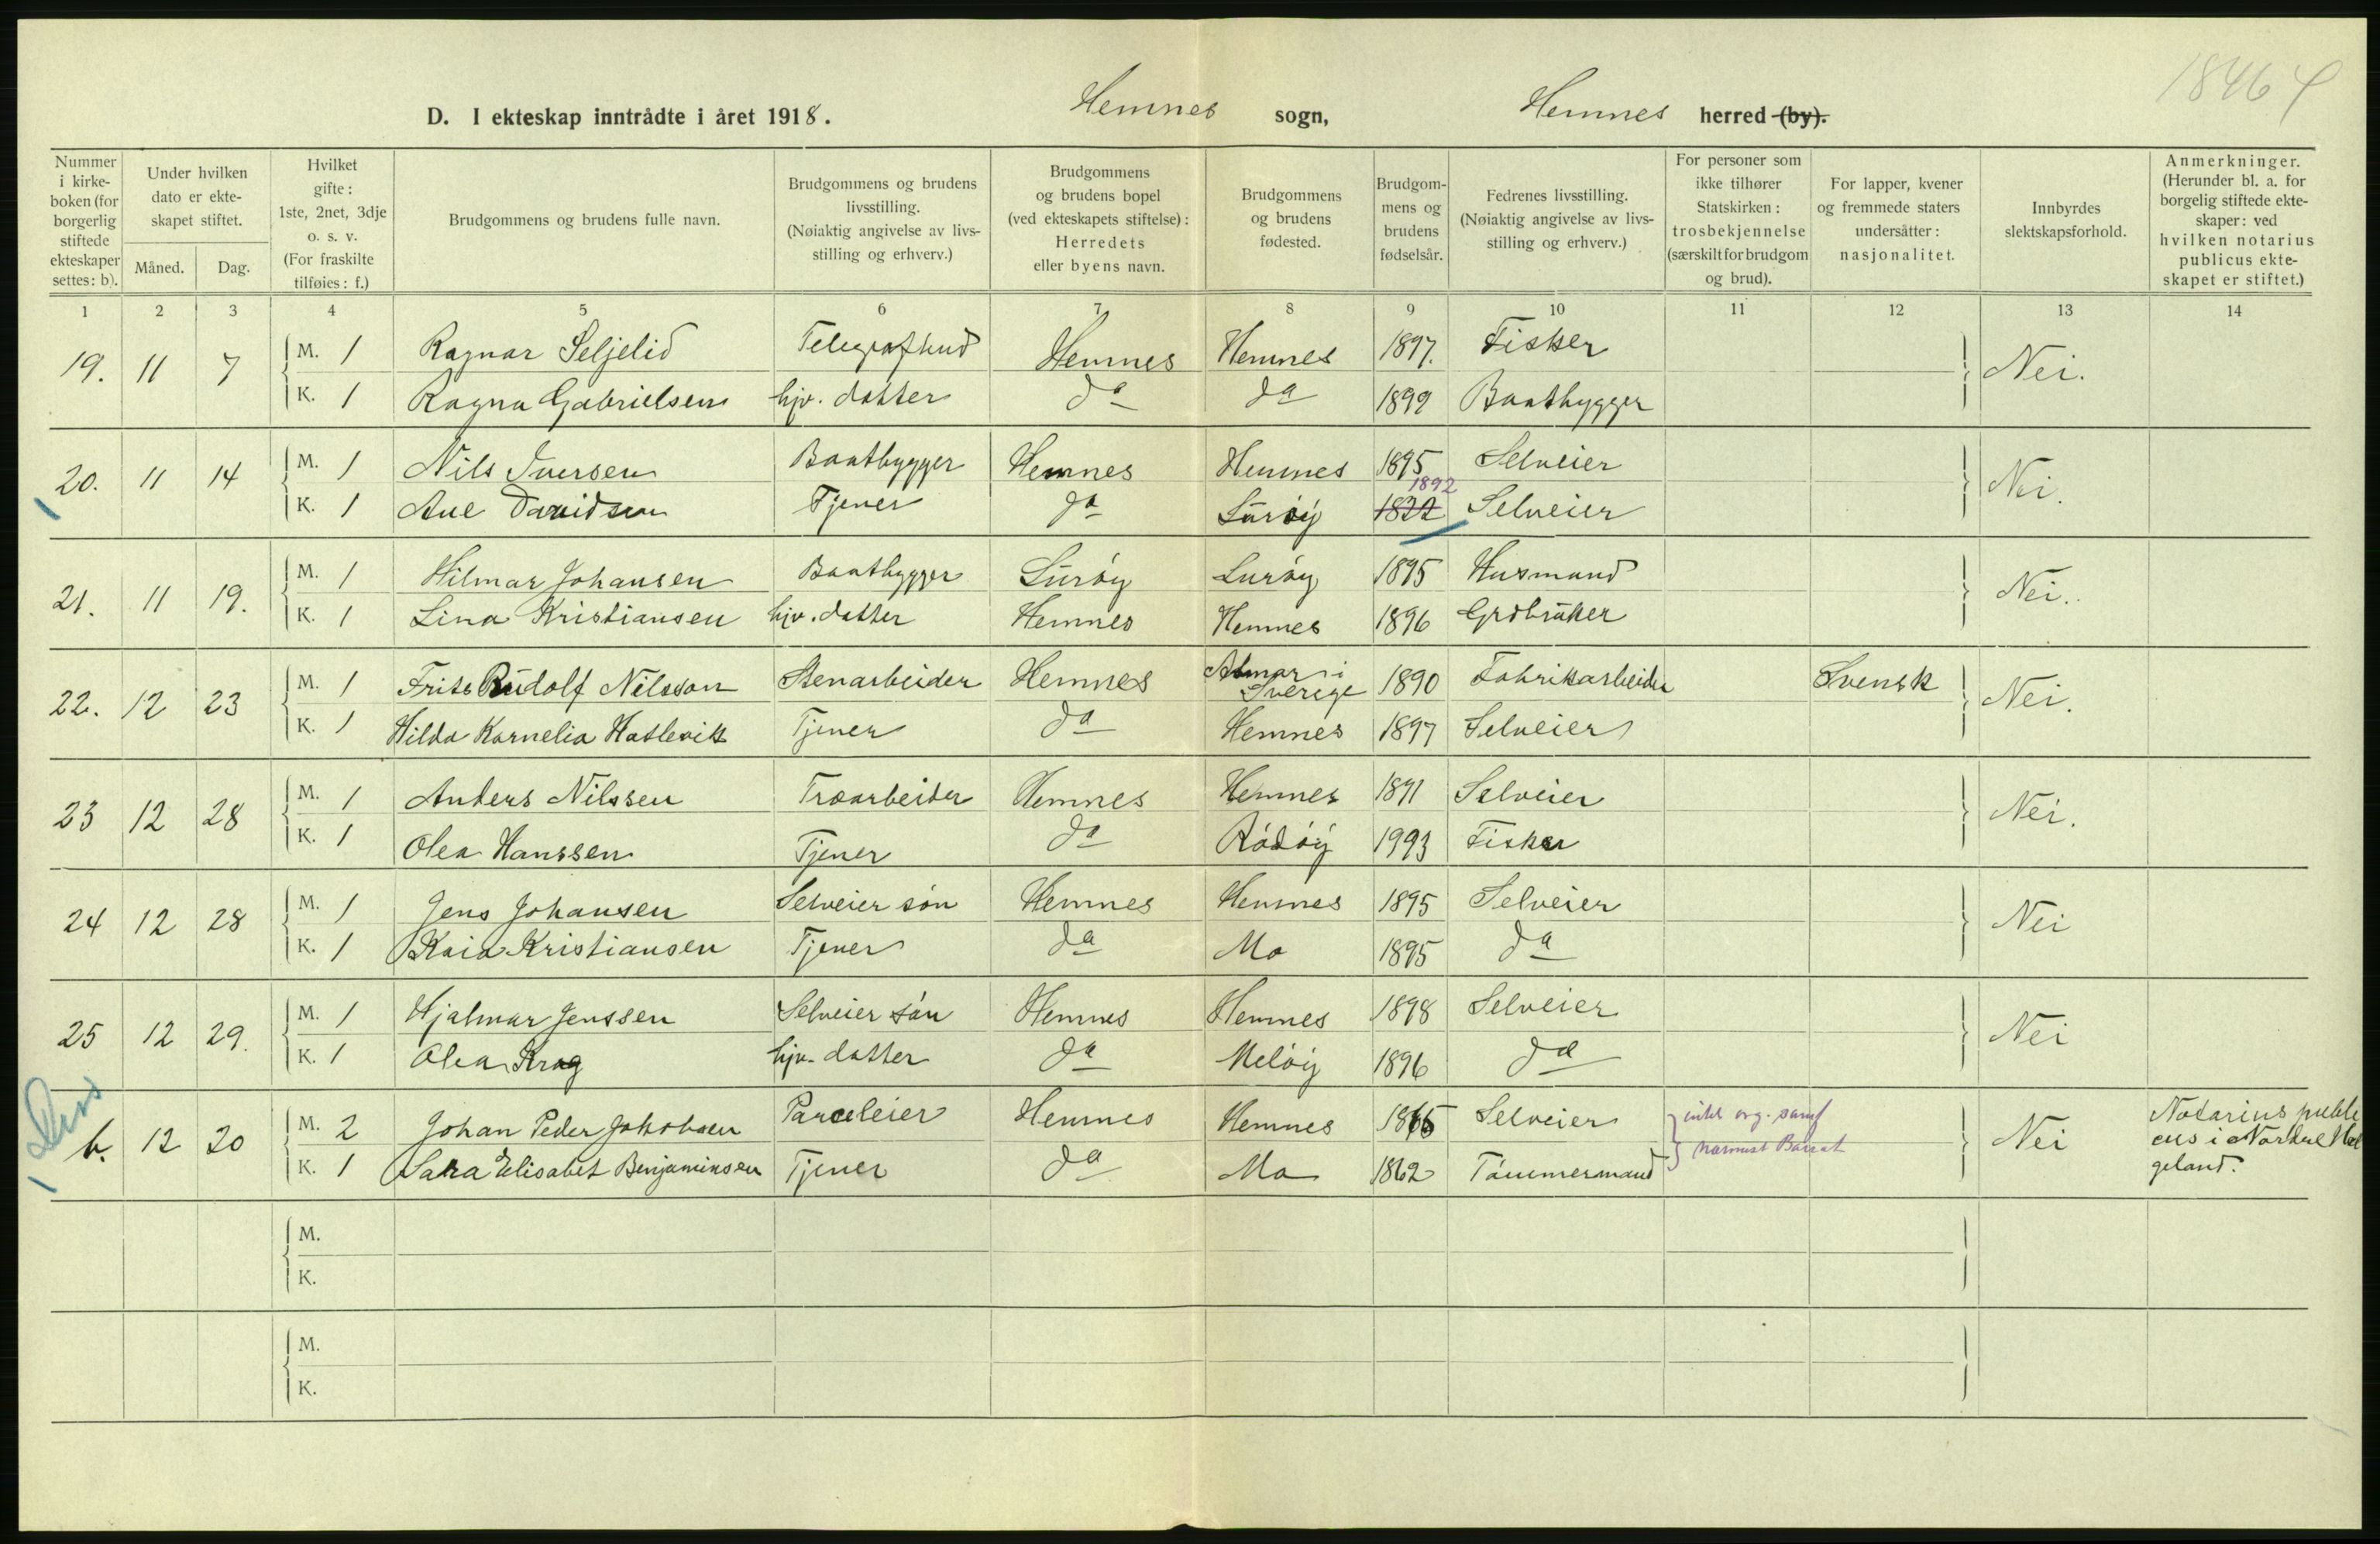 18464
D. I ekteskap inntrådte i året 1918. Hemnes sogn, Hemnes herred (by).
Nummer i kirkeboken (for borgerlig stiftede ekteskaper settes: b). Under hvilken dato er ekteskapet stiftet. Måned. Dag. Hvilket gifte: 1ste, 2net, 3dje o. s. v. (For fraskilte tilføies: f.) Brudgommens og brudens fulle navn. Brudgommens og brudens livsstilling. (Nøiaktig angivelse av livsstilling og erhverv.) Brudgommens og brudens bopel (ved ekteskapets stiftelse): Herredets eller byens navn. Brudgommens og brudens fødested. Brudgommens og brudens fødselsår. Fedrenes livsstilling. (Nøiaktig angivelse av livsstilling og erhverv.) For personer som ikke tilhører Statskirken: trosbekjennelse (særskilt for brudgom og brud). For lapper, kvener og fremmede staters undersåtter: nasjonalitet. Innbyrdes slektskapsforhold. Anmerkninger. (Herunder bl. a. for borgelig stiftede ekteskaper: ved hvilken notarius publicus ekteskapet er stiftet.)
1 2 3 4 5 6 7 8 9 10 11 12 13 14
19. 11 7 M. 1 Ragnar Seljelid Telegrafbud Hemnes Hemnes 1897. Fisker Nei.
K. 1 Ragna Gabrielsen hjv. datter da da 1899 Baatbygger
20. 11 14 M. 1 Nils Iversen Baatbygger Hemnes Hemnes 1895 Selveier Nei.
K. 1 Ane Davidsen Tjener da Luröy 1822 1892 Selveier
21. 11 19. M. 1 Hilmar Johansen Baatbygger Luröy Luröy 1895 Husmand Nei.
K. 1 Lina Kristiansen hjv. datter Hemnes Hemnes 1896 Grdbruker
22. 12 23 M. 1 Frits Rudolf Nilsson Stenarbeider Hemnes i Sverige 1890 Fabrikarbeider Svensk Nei.
K. 1 Hilda Kornelia Hatlevik Tjener da Hemnes 1897 Selveier
23 12 28 M. 1 Anders Nilssen Træarbeider Hemnes Hemnes 1891 Selveier Nei.
K. 1 Olea Hanssen Tjener da Rödöy 1993 Fisker
24 12 28 M. 1 Jens Johansen Selveier sön Hemnes Hemnes 1895 Selveier Nei
K. 1 Kaia Kristiansen Tjener da Mo 1895 da
25 12 29. M. 1 Hjalmar Jenssen Selveier sön Hemnes Hemnes 1898 Selveier Nei
K. 1 Olea Krog hjv. datter da Melöy 1896 da
b. 12 20 M. 2 Johan Peder Jakobsen Parceleier Hemnes Hemnes 1865 Selveier Nei Notarius publi
cus i Nordre Hel
geland.
K. 1 Sara Elisabet Benjaminsen Tjener da Mo 1862 Tömmermand
M.
K.
M.
K.